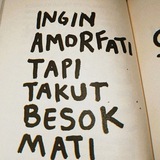 INGIN
AMORFATI
TAPI
TAKUT
BESOK
MATI